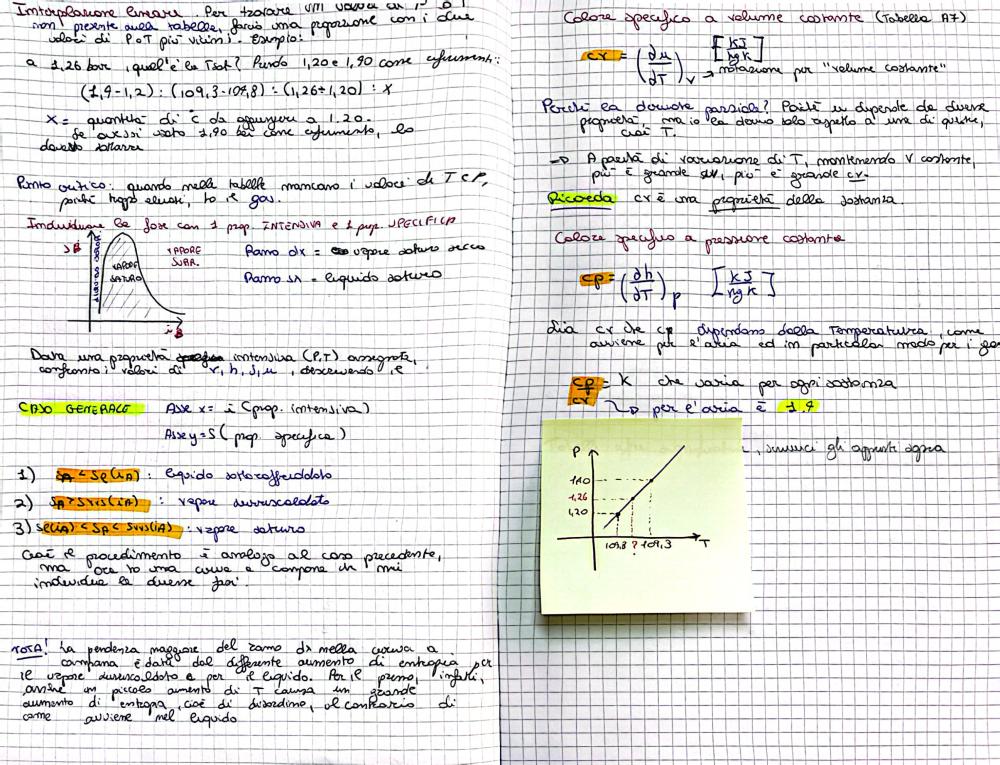 Interpolazione lineare Per trovare un valore di P o T
non presente sulla tabella, faccio una proporzione con i due
valori di P o T più vicini. Esempio:
a 1,26 bar, qual'è la Tsat? Prendo 1,20 e 1,40 come riferimenti:
(1,4-1,2) : (109,3-104,8) : (1,26-1,20) : x
X = quantità di c da aggiungere a 1.20.
Se avessi usato 1,40 bar come riferimento, lo
dovevo sottrarre
Punto critico: quando nelle tabelle mancano i valori di T e P,
poiché troppo elevati, ho il gas.
Individuare la fase con 1 prop. INTENSIVA e 1 prop. SPECIFICA
VAPORE
SURR.
VAPORE
SATURO
Ramo dx = vapore saturo secco
Ramo sx = liquido saturo
Data una proprietà intensiva (P,T) assegnata,
confronto i valori di v, h, s, u, descrivendo il
CASO GENERALE Asse x = i (prop. intensiva)
Asse y = S (prop. specifica)
1) SA < Sl(iA) : liquido sottoraffreddato
2) SA > Svs(iA) : vapore surriscaldato
3) Sl(iA) < SA < Svs(iA) : vapore saturo
Cioè il procedimento è analogo al caso precedente,
ma ora ho una curva a campana che mi
individua le diverse fasi.
NOTA! La pendenza maggiore del ramo dx nella curva a
campana è data dal differente aumento di entropia per
il vapore surriscaldato e per il liquido. Per il primo, infatti,
anche un piccolo aumento di T causa un grande
aumento di entropia, cioè di disordine, al contrario di
come avviene nel liquido
Calore specifico a volume costante (Tabella A7)
cv = (∂u/∂T)v [kJ/kg K]
→ notazione per "volume costante"
Perché la derivata parziale? Poiché u dipende da diverse
proprietà, ma io la derivo solo rispetto a una di queste,
cioè T.
→ A parità di variazione di T, mantenendo V costante,
più è grande su, più è grande cv.
Ricorda cv è una proprietà della sostanza.
Calore specifico a pressione costante
cp = (∂h/∂T)p [kJ/kg K]
Sia cv che cp dipendono dalla Temperatura, come
avviene per l'aria ed in particolar modo per i gas
cp/cv = K che varia per ogni sostanza
→ per l'aria è 1.4
, sennò gli appunti sopra
P
1,40
1,26
1,20
104,8 ? 109,3 T